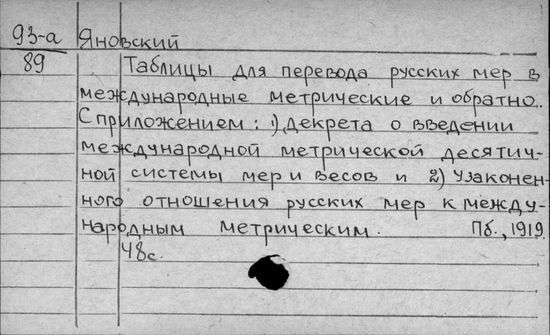 93-а Яновский
89 Таблицы для перевода русских мер в
международные метрические и обратно.
С приложением: 1) Декрета о введении
международной метрической десятич-
ной системы мер и весов и 2) Узаконен-
ного отношения русских мер к между-
народным метрическим. Пб., 1919.
48с.